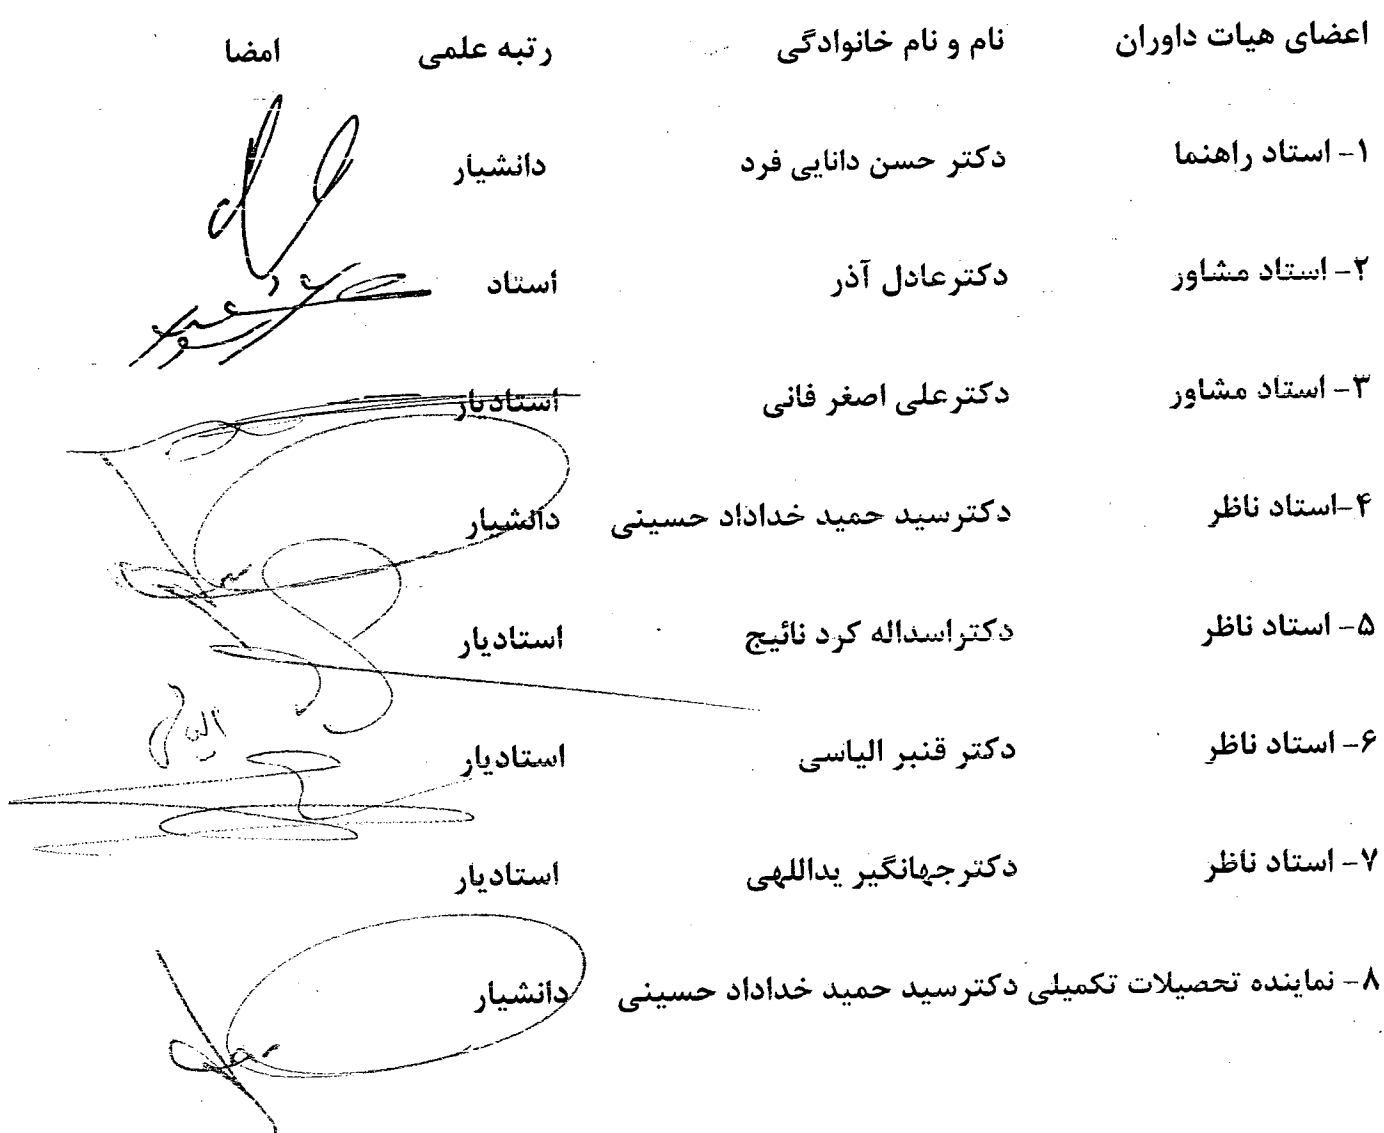 اعضای هیات داوران نام و نام خانوادگی رتبه علمی امضا
۱- استاد راهنما دکتر حسن دانایی فرد دانشیار
۲- استاد مشاور دکترعادل آذر استاد
۳- استاد مشاور دکترعلی اصغر فانی استادیار
۴-استاد ناظر دکترسید حمید خداداد حسینی دانشیار
۵- استاد ناظر دکتراسداله کرد نائیج استادیار
۶- استاد ناظر دکتر قنبر الیاسی استادیار
۷- استاد ناظر دکترجهانگیر یداللهی استادیار
۸- نماینده تحصیلات تکمیلی دکترسید حمید خداداد حسینی دانشیار